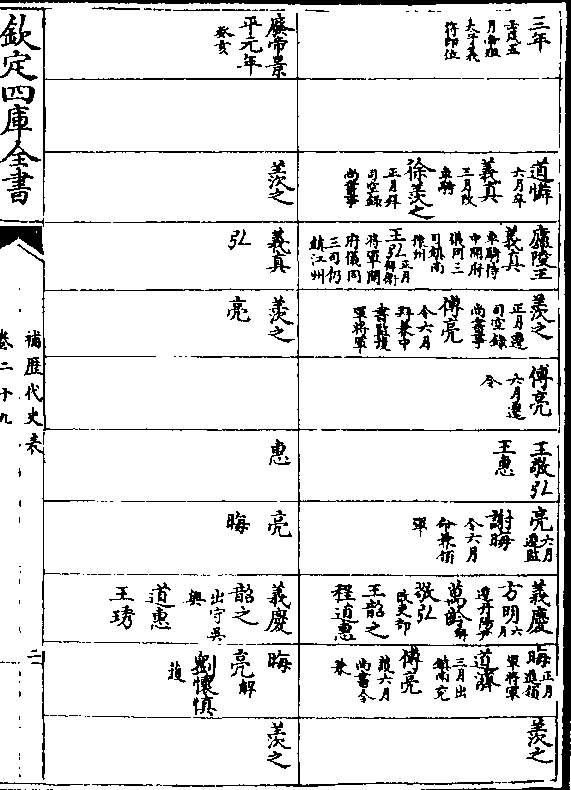 三年
壬戌五
月帝殂
太子義
符即位
道憐
六月卒
義真
三月改
車騎
徐羨之
正月拜
司空錄
尚書事
廬陵王
義真
車騎侍
中開府
儀同三
司鎮南
豫州
王弘正月
將軍開
府儀同
三司仍
鎮江州
羨之
正月遷
司空錄
尚書事
傅亮
令六月
書監護
軍將軍
傅亮
六月遷
令
王敬弘
王惠
亮六月
遷監
謝晦
令六月
命兼領
軍
義慶
方明六
月
遷丹陽尹
萬齡
敬弘
改吏部
王韶之
程道惠
晦正月
進領
軍將軍
道濟
三月出
鎮南兗
傅亮
護六月
尚書令
兼
羨之
廢帝景
平元年
癸亥
羨之
義真
弘
羨之
亮
惠
亮
晦
義慶
韶之
出守吳
興
道惠
王琇
晦
亮解
護
劉懷慎
羨之
欽定四庫全書
補歷代史表
卷二十九
二